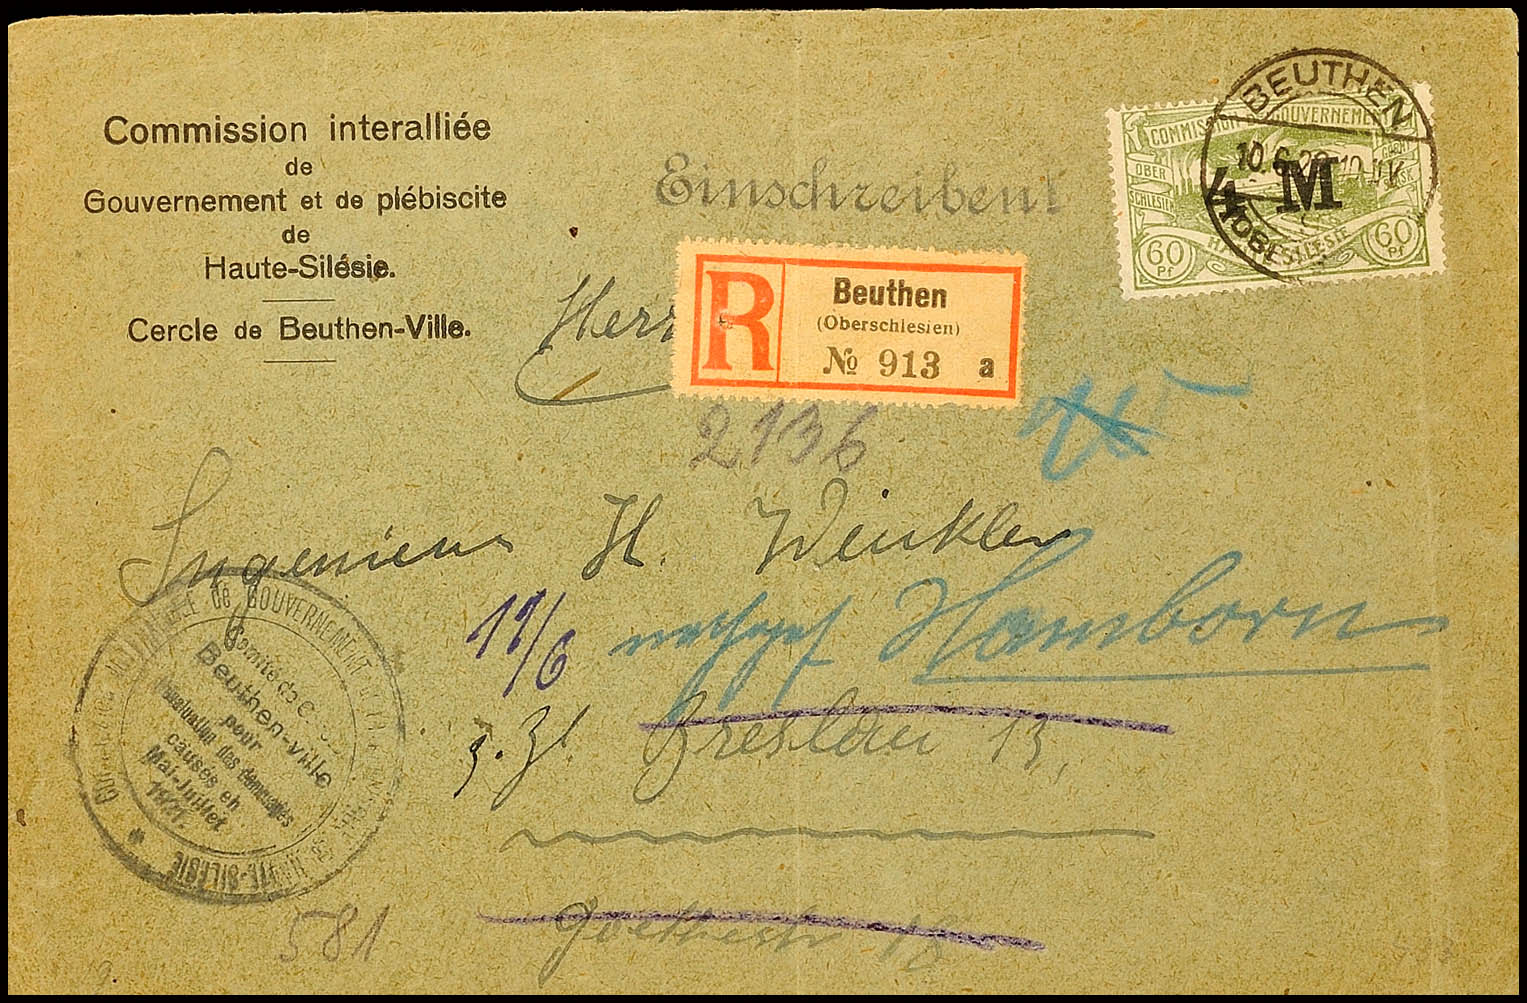 Commission interalliée
de
Gouvernement et de plébiscite
de
Haute-Silésie.
Cercle de Beuthen-Ville.
Einschreiben!
BEUTHEN
10.6.22
COMMISSION GOUVERNEMENT
OBER
SCHLESIEN
4 M
60 Pf
60 Pf
R
Beuthen
(Oberschlesien)
№ 913 a
Herrn
2136
Ingenieur H. Winkler
11/6 Hamborn
z. Zt. Breslau 13,
Goethestr 18
GOUVERNEMENT
HAUTE-SILESIE
Beuthen-ville
pour
l'évaluation des dommages
causés en
Mai-Juillet
1921.
581